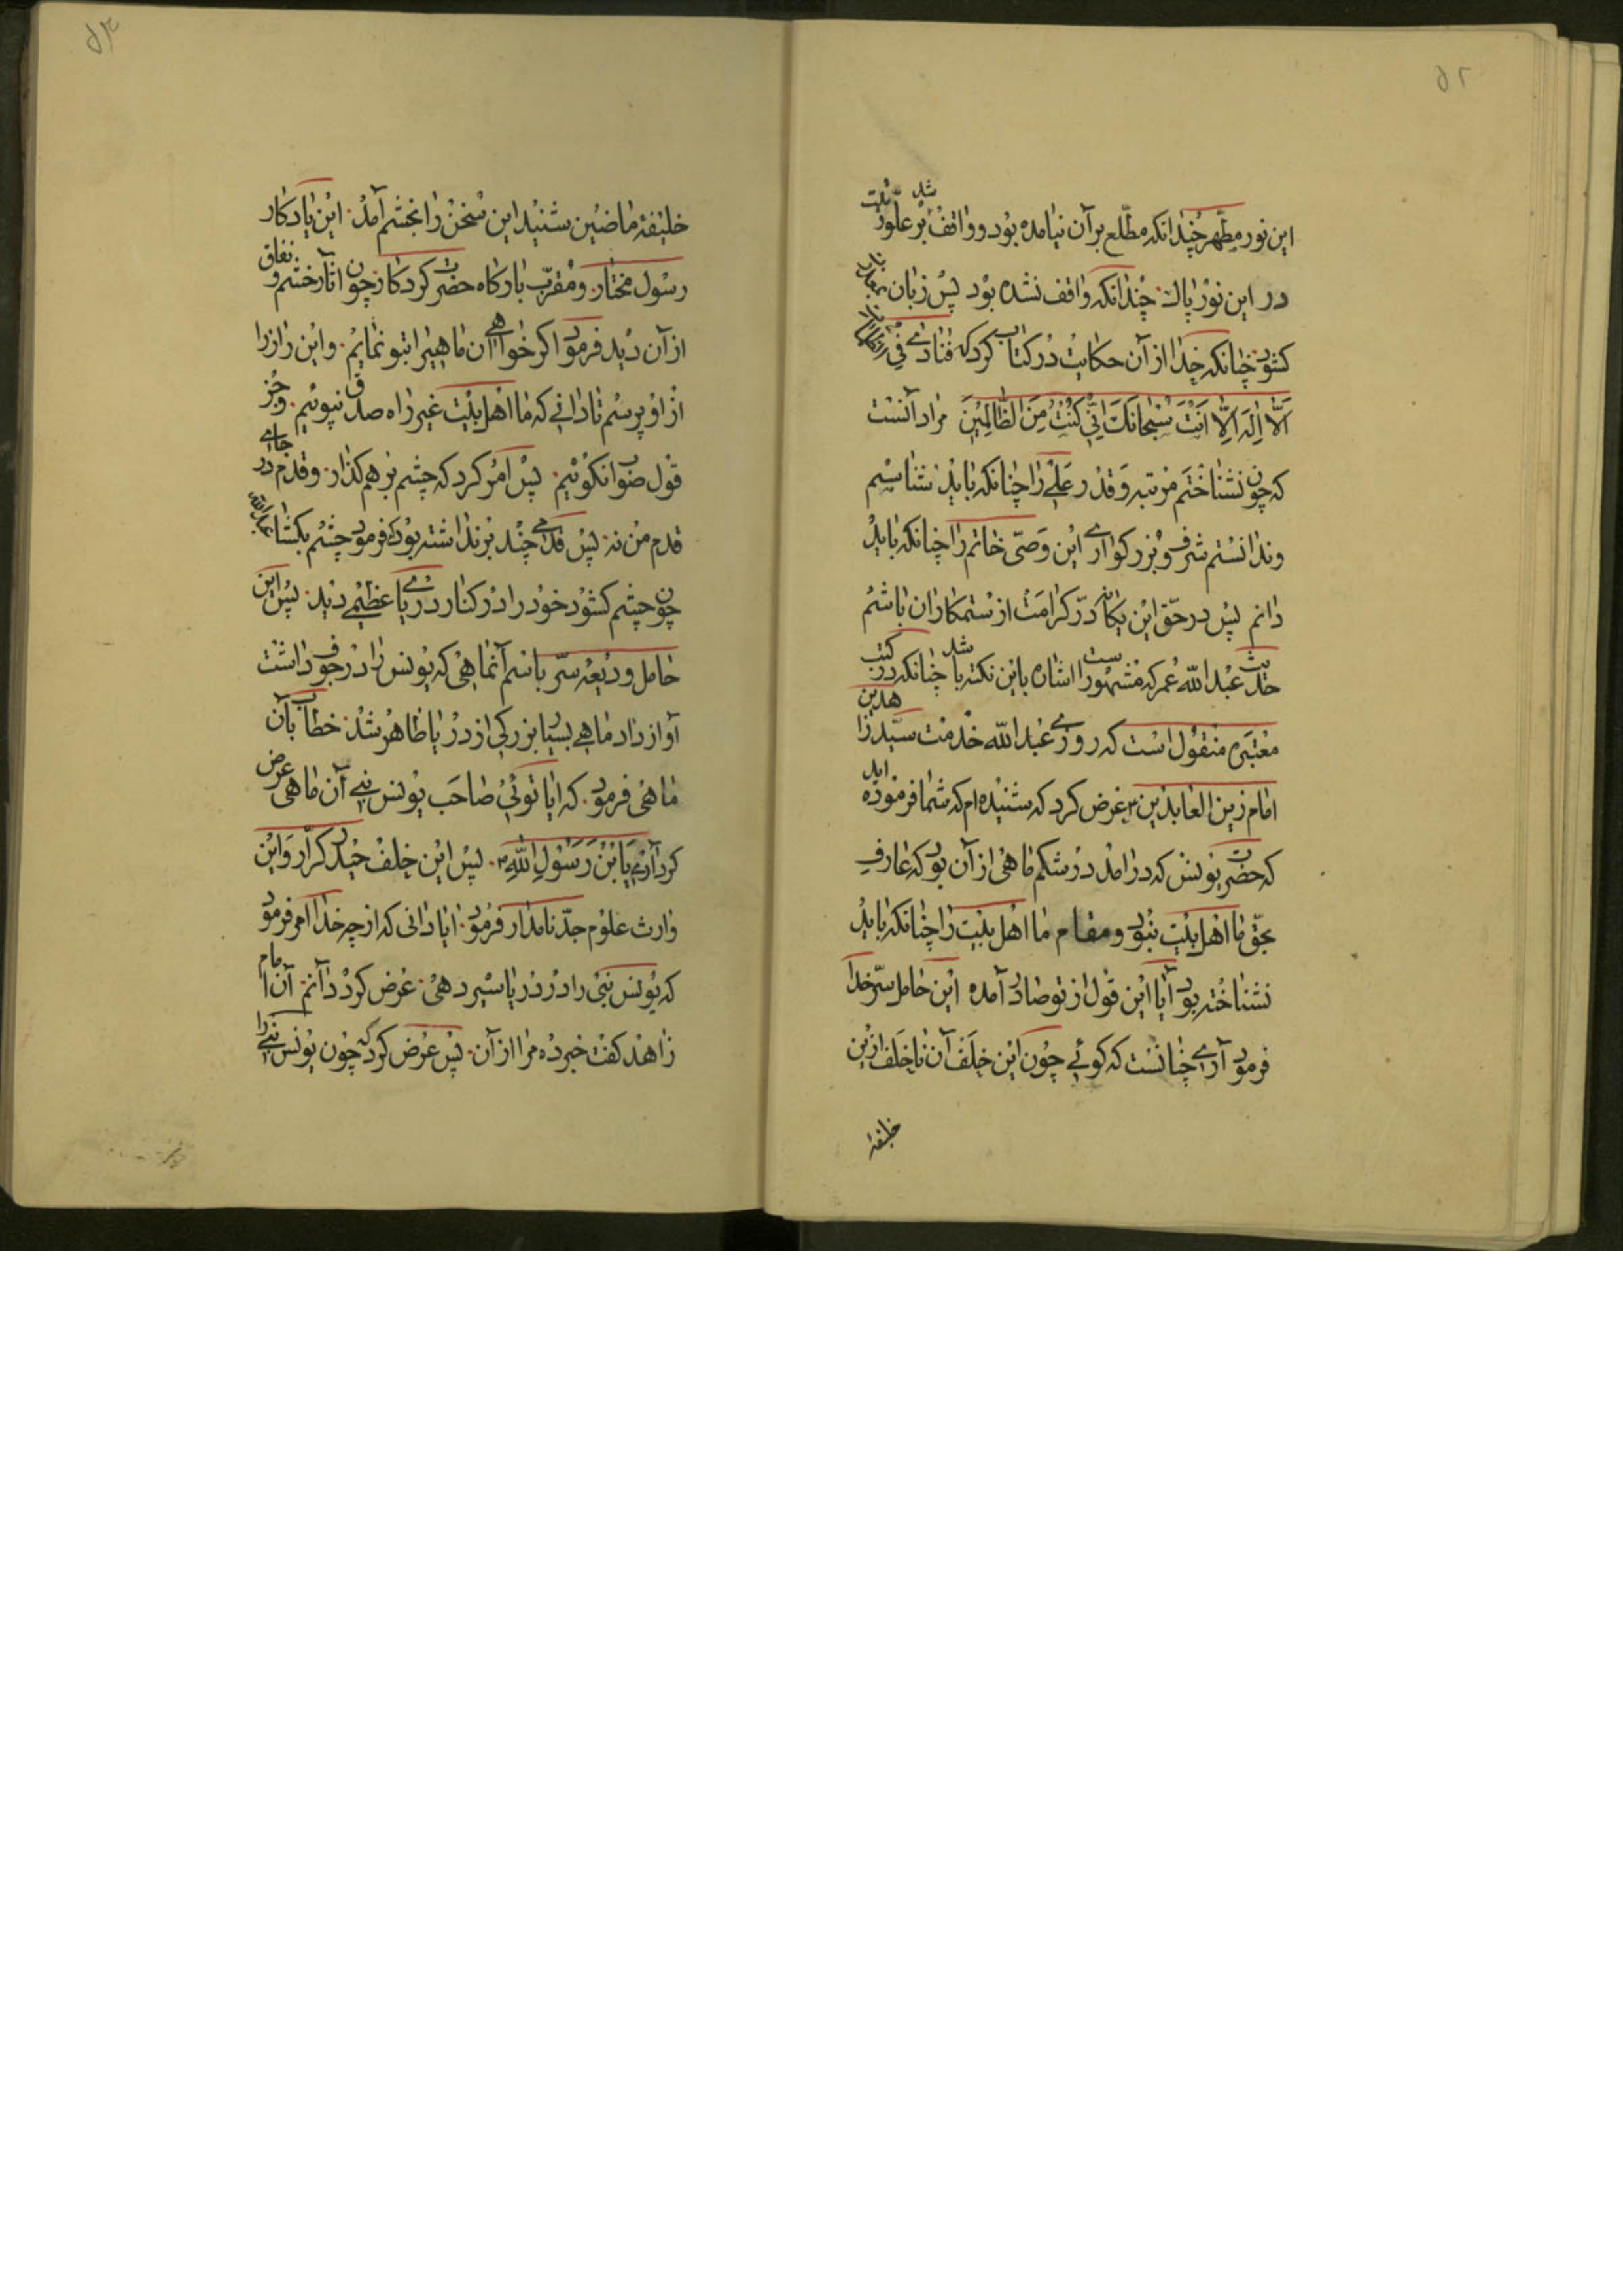 ۵۲
این نور مطهر چندانکه مطلع بر آن نیامده بود و واقف بر علو رتبت
در این نور پاک چندانکه واقف نشده بود پس زبان
کشود چنانکه خدا از آن حکایت در کتاب کرد که فنادی فی الظلمات
الا اله الا انت سبحانک انی کنت من الظالمین مراد آنست
که چون نشناختم مرتبه و قدر علی را چنانکه باید شناسیم
وندانستم شرف و بزرکواری این وصی خاتم را چنانکه باید
دانم پس در حق این یکانه در کرامت از ستمکاران باشم
حدیث عبدالله عمر که مشهور است اشاره باین نکته باشد چنانکه در کتب
معتبره منقول است که روزی عبدالله خدمت سید زاهدین
امام زین العابدین عرض کرد که شنیده ام که شما فرموده اید
که حضرت یونس که در امد در شکم ماهی از آن بود که عارف
بحق ما اهل بیت نبود و مقام ما اهل بیت را چنانکه باید
نشناخته بود آیا این قول از تو صادر آمده این حامل سر خدا
فرمود آری چنانست که کوئی چون این خلف آن ناخلف ازین
خلیفهٔ
۵۳
خلیفهٔ ماضین شنید این سخن را بخشم آمد این یادکار
رسول مختار و مقرب بارکاه حضرت کردکار چون اثار خشم و نفاق
از آن دید فرمود اکر خواهی آن ماهیرا بتو نمایم و این راز را
از او پرسم تا دانی که ما اهل بیت غیر راه صدق نپوئیم و جز
قول صواب نکوئیم پس امر کرد که چشم بر هم کذار و قدم در جای
قدم من نه پس قدمی چند بر نداشته بود که فرمود چشم بکشا
چون چشم کشود خود را در کنار دریای عظیمی دید پس این
حامل ودیعه سر باسم آنماهی که یونس را در جوف داشت
آواز داد ماهی بسیار بزرکی از دریا ظاهر شد خطاب بآن
ماهی فرمود که ایا توئی صاحب یونس نبی آن ماهی عرض
کرد آری یا بن رسول الله پس این خلف حیدر کرار و این
وارث علوم جد نامدار فرمود ایا دانی که از چه خدا امر فرمود
که یونس نبی را در دریا سیر دهی عرض کرد دانم آن امام
زاهد کفت خبر ده مرا از آن پس عرض کرد که چون یونس نبی را